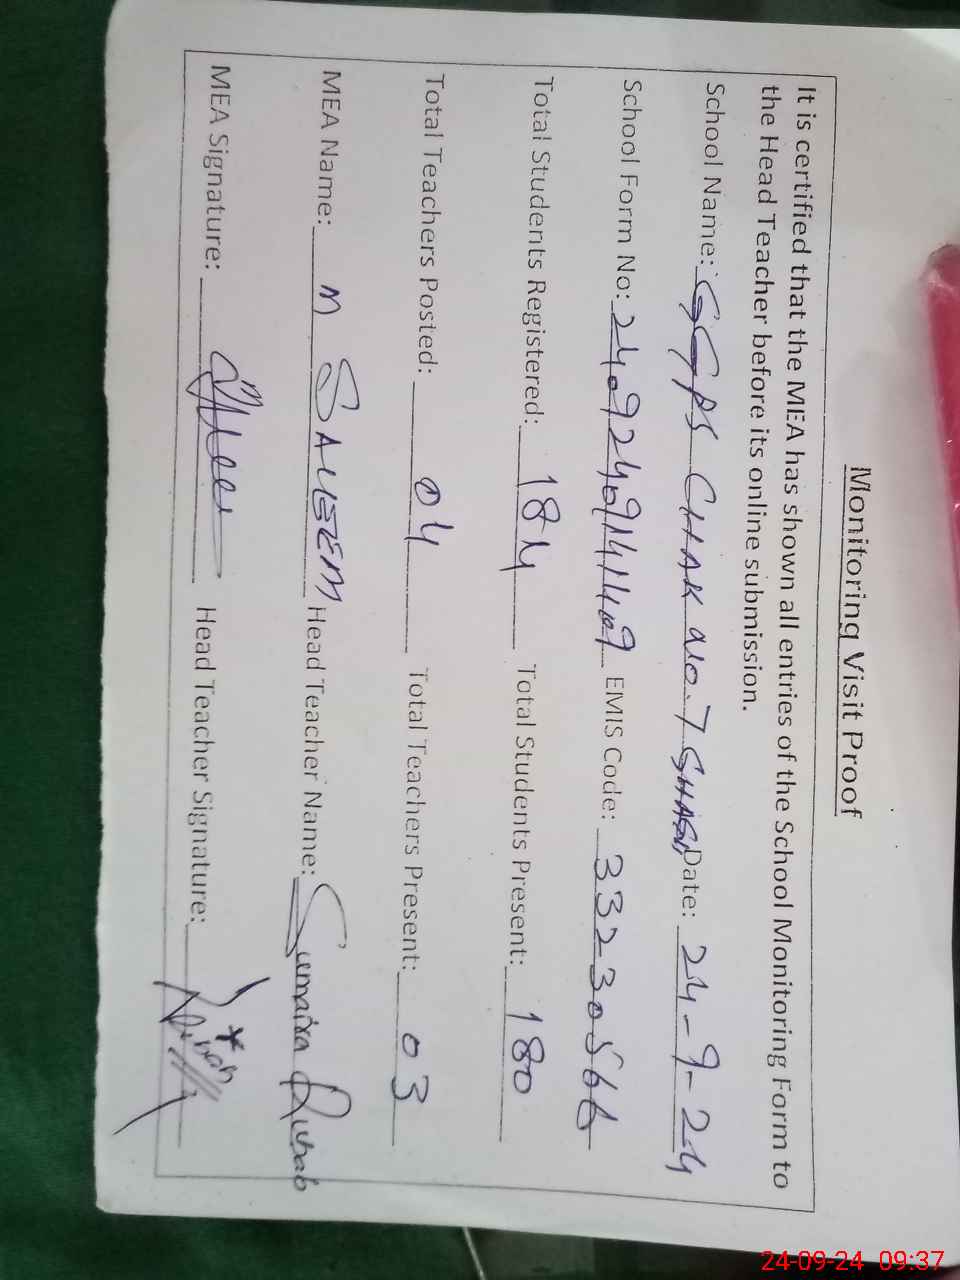 Monitoring Visit Proof
It is certified that the MEA has shown all entries of the School Monitoring Form to
the Head Teacher before its online submission.
School Name: GGPS CHAK No. 7 Date: 24-9-24
School Form No: EMIS Code: 33230566
Total Students Registered: 184 Total Students Present: 180
Total Teachers Posted: 04 Total Teachers Present: 03
MEA Name: M SALEEM Head Teacher Name: Sumaira Rubab
MEA Signature: Head Teacher Signature:
24-09-24 09:37